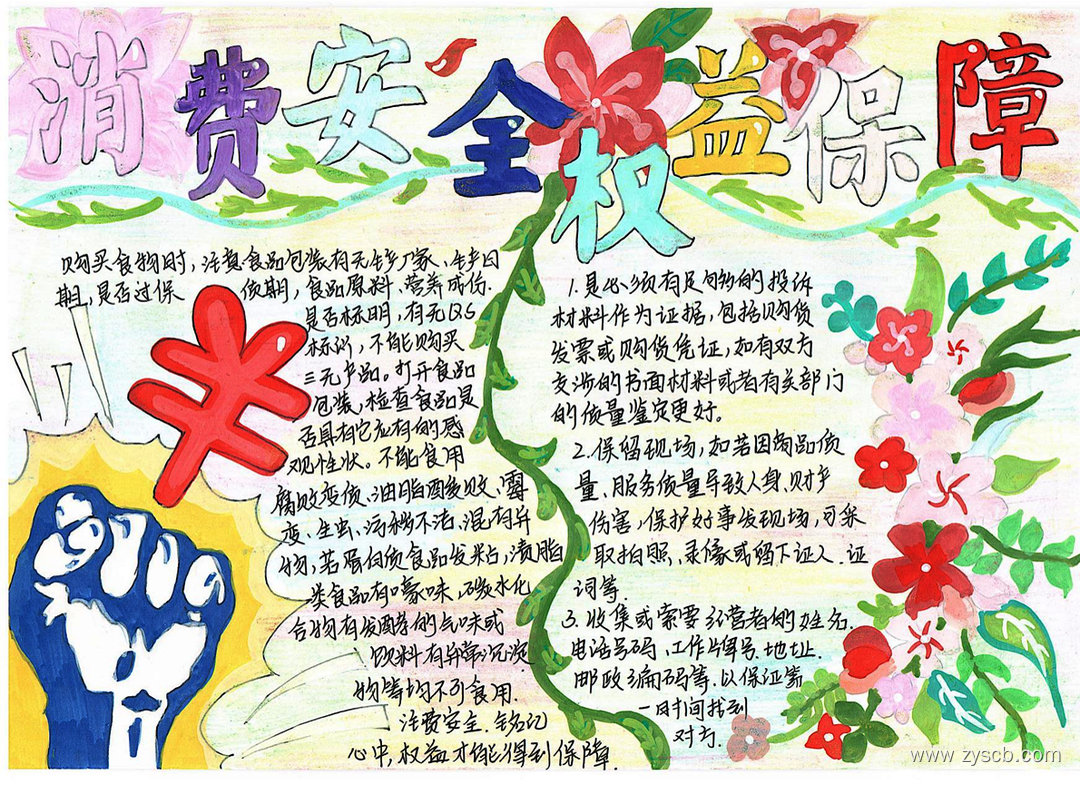 消费安全权益保障
购买食物时,注意食品包装有无生产厂家、生产日
期,是否过保 质期,食品原料、营养成份
是否标明,有无QS
标识,不能购买
三无产品。打开食品
包装,检查食品是
否具有它应有的感
观性状。不能食用
腐败变质、油脂酸败、霉
变、生虫、污秽不洁、混有异
物,若蛋白质食品发粘,渍脂
类食品有嚎味,碳水化
合物有发酵的气味或
饮料有异常沉淀
物等均不可食用.
注费安全.铭记
心中,权益才能得到保障.
1.具必须有足够的投诉
材料作为证据,包括购货
发票或购货凭证,如有双方
交涉的书面材料或者有关部门
的质量鉴定更好。
2.保留现场,如若因商品质
量、服务质量导致人身、财产
伤害,保护好事发现场,可采
取拍照、录像或留下证人、证
词等.
3.收集或索要经营者的姓名.
电话号码、工作牌号、地址.
邮政编码等.以保证第
一时间找到
对方.
www.zyscb.com